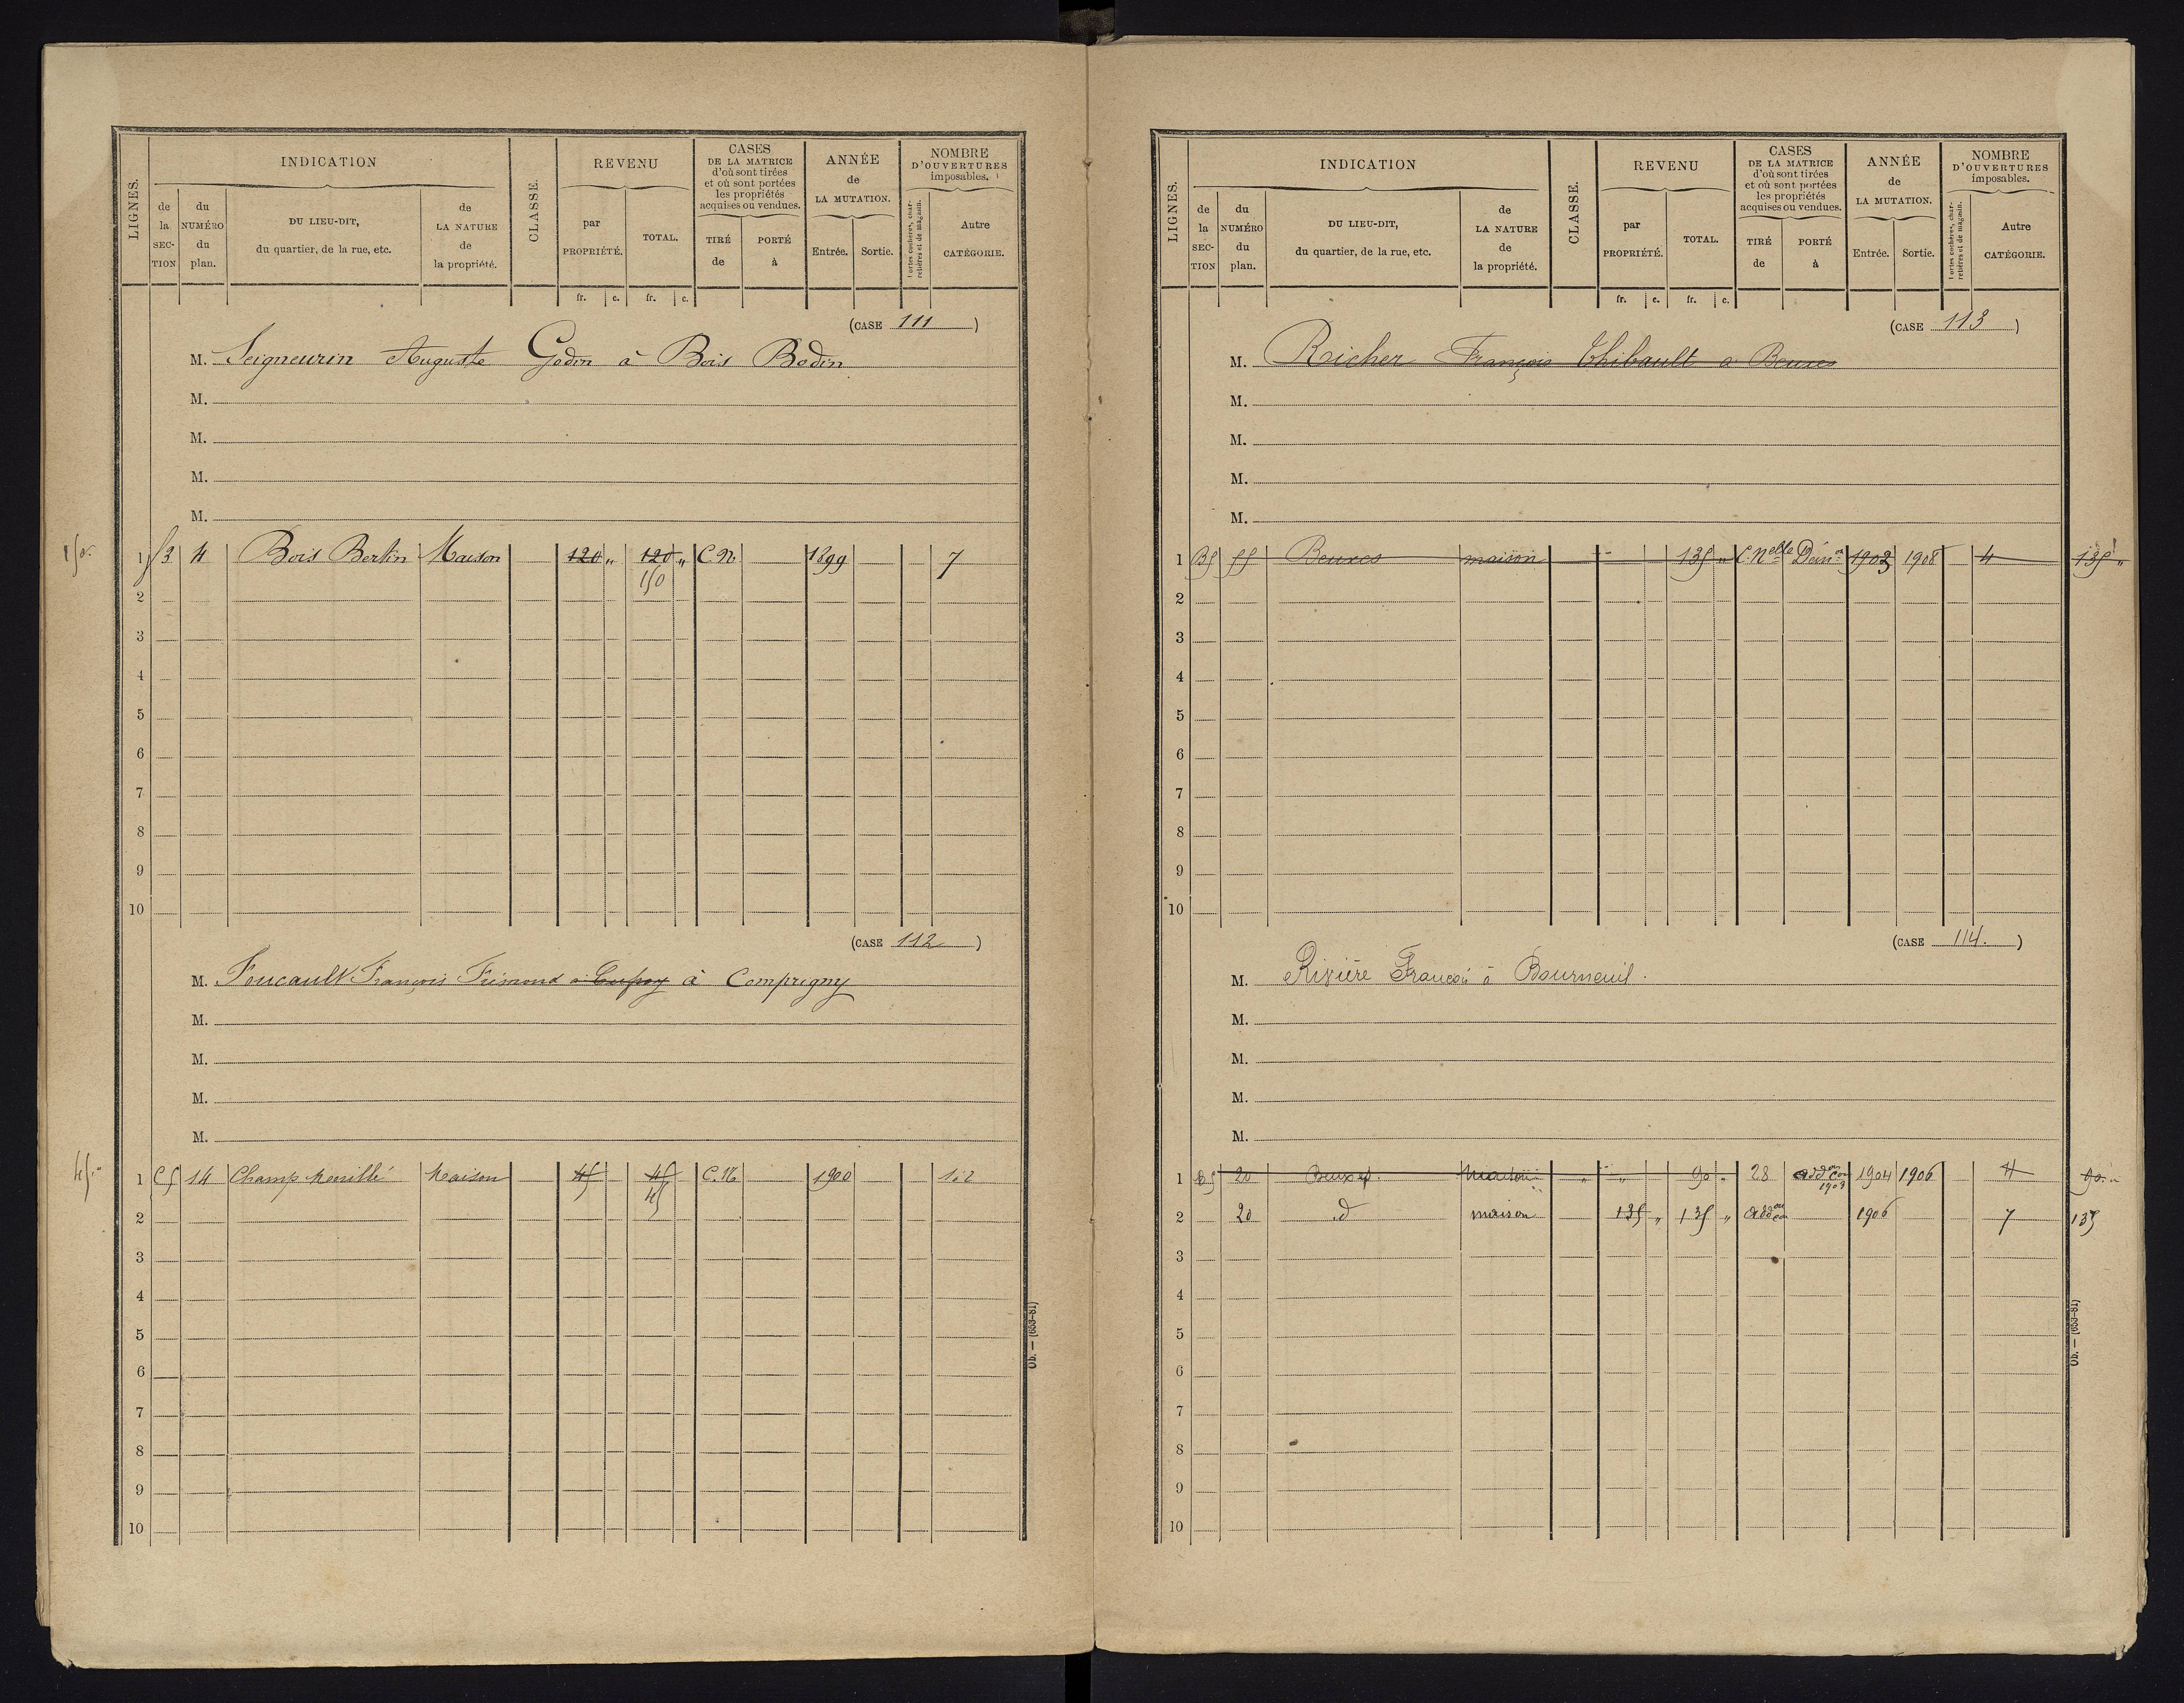 LIGNES.
INDICATION
de la SECTION
du NUMÉRO du plan.
DU LIEU-DIT, du quartier, de la rue, etc.
de LA NATURE de la propriété.
CLASSE.
REVENU
par PROPRIÉTÉ.
TOTAL.
CASES DE LA MATRICE d'où sont tirées et où sont portées les propriétés acquises ou vendues.
TIRÉ de
PORTÉ à
ANNÉE de LA MUTATION.
Entrée.
Sortie.
NOMBRE D'OUVERTURES imposables.
Portes cochères, charretières et de magasin.
Autre CATÉGORIE.
fr. c. fr. c.
(CASE 111 )
M. Seigneurin Auguste Godin à Bois Bodin
M.
M.
M.
M.
1 4 Bois Bertin Maison 120 " 120 " C.N. 1899 7
150
2
3
4
5
6
7
8
9
10
(CASE 112 )
M. Foucault François à Comprigny
M.
M.
M.
M.
45 "
1 C5 14 Champ Maison 45 45 C.N. 1900 1.2
45
2
3
4
5
6
7
8
9
10
Ob. — (653-81)
LIGNES.
INDICATION
de la SECTION
du NUMÉRO du plan.
DU LIEU-DIT, du quartier, de la rue, etc.
de LA NATURE de la propriété.
CLASSE.
REVENU
par PROPRIÉTÉ.
TOTAL.
CASES DE LA MATRICE d'où sont tirées et où sont portées les propriétés acquises ou vendues.
TIRÉ de
PORTÉ à
ANNÉE de LA MUTATION.
Entrée.
Sortie.
NOMBRE D'OUVERTURES imposables.
Portes cochères, charretières et de magasin.
Autre CATÉGORIE.
fr. c. fr. c.
(CASE 113 )
M. Richer François Thibault a Beuxes
M.
M.
M.
M.
1 B5 55 Beuxes maison 135 " C. Nelle Dém on 1903 1908 4 135 "
2
3
4
5
6
7
8
9
10
(CASE 114. )
M. Rivière François à Bourneuil.
M.
M.
M.
M.
1 B5 20 Beuxes. Maison " " 90 " 28 add on con 1903 1904 1906 4 90. "
2 20 d maison 135 " 135 " add on con 1906 7 135
3
4
5
6
7
8
9
10
Ob. — (653-81)